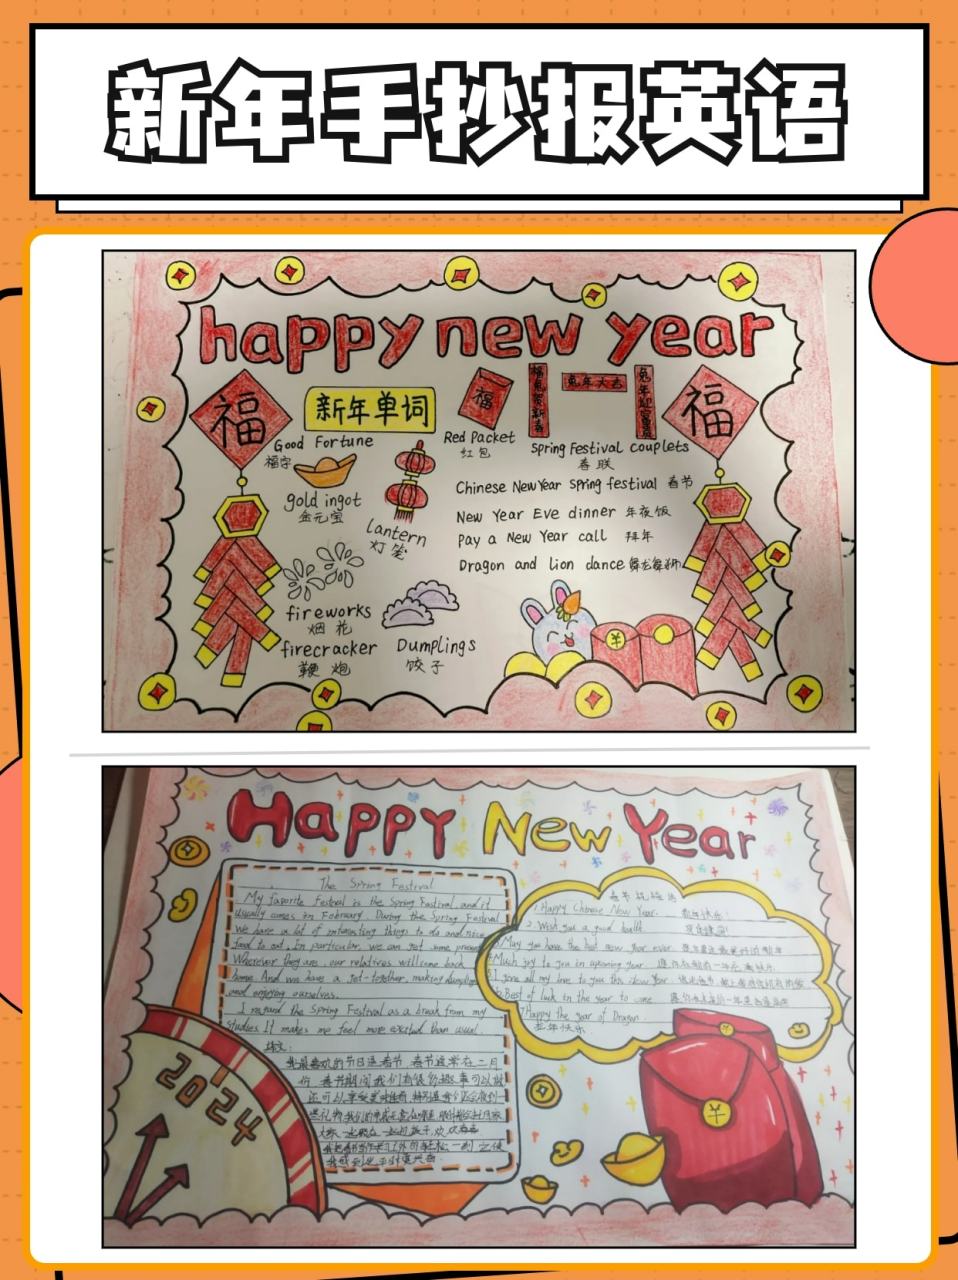 新年手抄报英语
happy new year
福
新年单词
福
福兔贺新春
兔年大吉
兔年迎富贵
福
Good Fortune
福字
Red Packet
红包
Spring Festival couplets
春联
gold ingot
金元宝
Lantern
灯笼
Chinese New Year Spring festival 春节
New Year Eve dinner 年夜饭
Pay a New Year call 拜年
Dragon and lion dance 舞龙舞狮
fireworks
烟花
firecracker
鞭炮
Dumplings
饺子
Happy New Year
The Spring Festival
My favorite Festival is the Spring Festival, and it
usually comes in February. During the Spring Festival
We have a lot of interesting things to do and nice
food to eat. In particular, we can get some
Wherever they are, our relatives will come back
home. And we have a get-together, making dumplings
and enjoying ourselves.
I regard the Spring Festival as a break from my
studies. It makes me feel more excited than usual.
译文:
我最喜欢的节日是春节 春节通常在二月
份 春节期间我们有很多趣事可以做
春节祝福语
1.Happy Chinese New Year. 新年快乐!
2.Wish you a good health 身体健康!
3.May you have the best new year ever.
4.Much joy to you in upcoming year
5.I give all my love to you this New Year.
6.Best of luck in the year to come
7.Happy the year of Dragon.
龙年快乐
2024